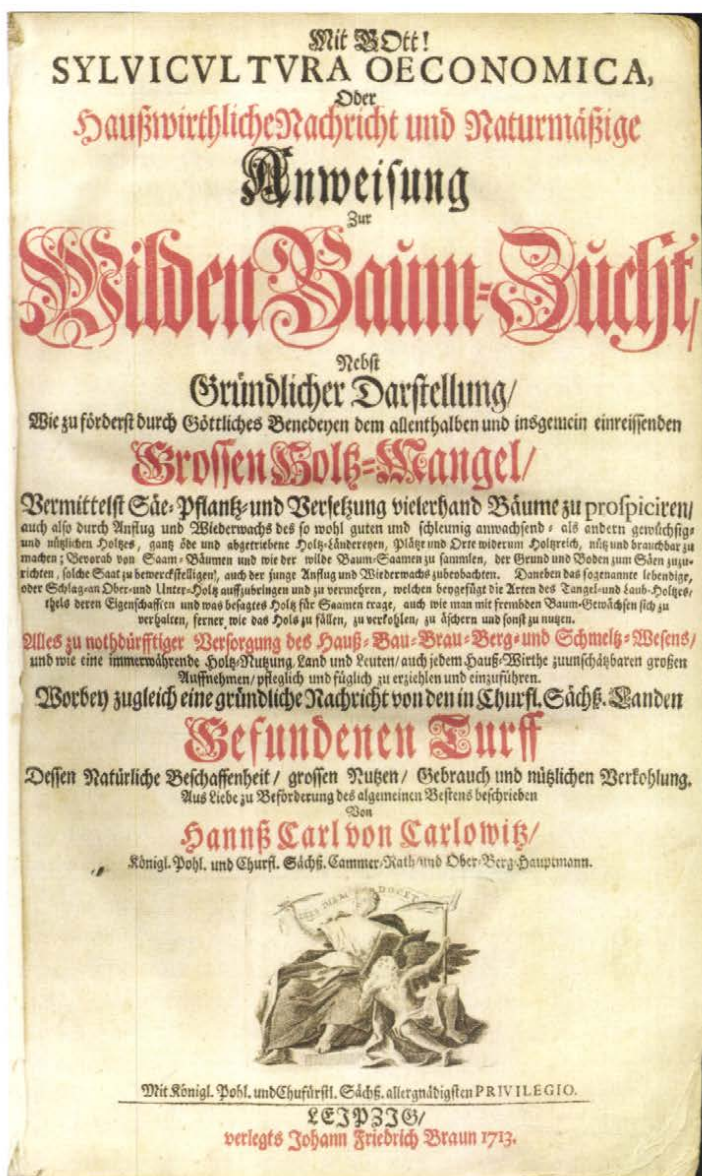 Mit GOtt!
SYLVICVLTVRA OECONOMICA,
Oder
Haußwirthliche Nachricht und Naturmäßige
Anweisung
Zur
Wilden Baum-Zucht,
Nebst
Gründlicher Darstellung/
Wie zu förderst durch Göttliches Benedeyen dem allenthalben und insgemein einreissenden
Grossen Holtz-Mangel/
Vermittelst Säe- Pflantz- und Versetzung vielerhand Bäume zu prospiciren/
auch also durch Anflug und Wiederwachs des so wohl guten und schleunig anwachsend- als andern gewüchsig-
und nützlichen Holtzes, gantz öde und abgetriebene Holtz-Ländereyen, Plätze und Orte widerum Holtzreich, nütz und brauchbar zu
machen; Bevorab von Saam-Bäumen und wie der wilde Baum-Saamen zu sammlen, der Grund und Boden zum Säen zuzu-
richten, solche Saat zu bewerckstelligen, auch der junge Anflug und Wiederwachs zubeobachten. Daneben das sogenannte lebendige,
oder Schlag-an Ober- und Unter-Holtz auffzubringen und zu vermehren, welchen beygefügt die Arten des Tangel- und Laub-Holtzes,
theils deren Eigenschafften und was besagtes Holtz für Saamen trage, auch wie man mit frembden Baum-Gewächsen sich zu
verhalten, ferner wie das Holz zu fällen, zu verkohlen, zu äschern und sonst zu nutzen.
Alles zu nothdürfftiger Versorgung des Hauß-Bau-Brau-Berg- und Schmeltz-Wesens/
und wie eine immerwährende Holtz-Nutzung Land und Leuten/ auch jedem Hauß-Wirthe zu unschätzbaren großen
Auffnehmen/ pfleglich und füglich zu erziehlen und einzuführen.
Worbey zugleich eine gründliche Nachricht von den in Churfl. Sächß. Landen
Gefundenen Turff
Dessen Natürliche Beschaffenheit/ grossen Nutzen/ Gebrauch und nützlichen Verkohlung.
Aus Liebe zu Beförderung des algemeinen Bestens beschrieben
Von
Hannß Carl von Carlowitz/
Königl. Pohl. und Churfl. Sächß. Cammer-Rath und Ober-Berg-Hauptmann.
Mit Königl. Pohl. und Chufürstl. Sächß. allergnädigsten PRIVILEGIO.
LEJPZJG/
verlegts Johann Friedrich Braun 1713.